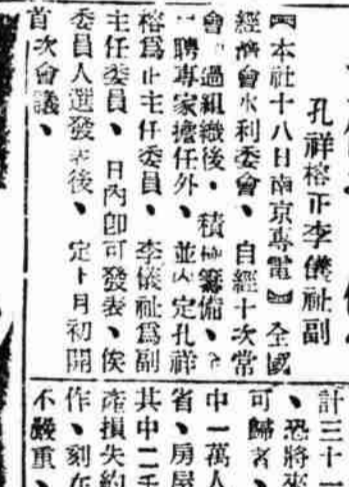 孔祥榕正李儀祉副
【本社十八日南京專電】全國
經濟會水利委會、自經十次常
會過組織後、積極籌備、
聘專家擔任外、並內定孔祥
榕爲正主任委員、李儀祉爲副
主任委員、日內卽可發表、俟
委員人選發表後、定下月初開
首次會議、
計三十一
、恐將來
可歸者、
中一萬人
省、房屋
其中二千
產損失約
作、刻在
不嚴重、